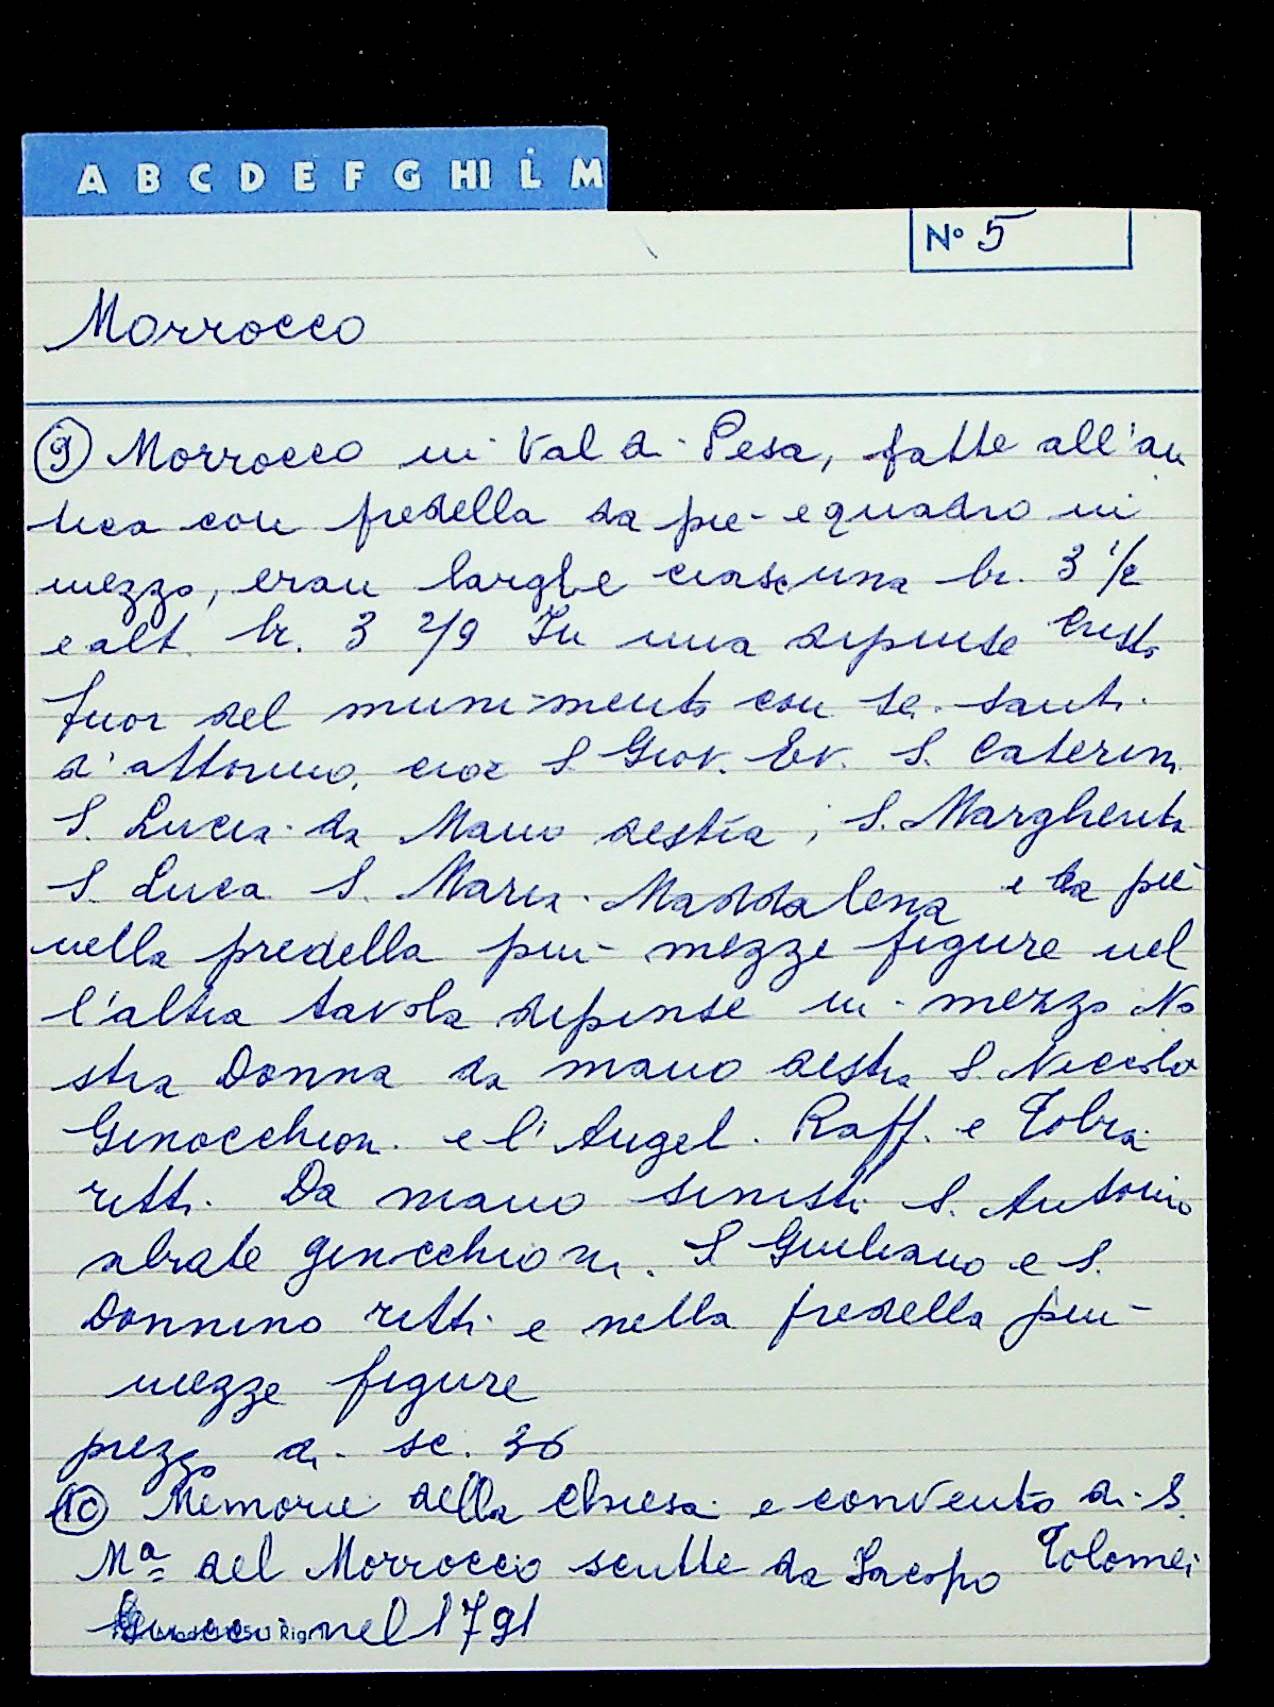 A B C D E F G HI L M
N° 5
Morrocco
9 Morrocco in Val di Pesa, fatte all'an
tica con predella da piè e quadro in
mezzo, eran larghe ciascuna br. 3 1/2
e alt. br. 3 2/9 In una dipinse Cristo
fuor del munimento con sei santi
d'attorno, cioè S. Giov. Ev. S. Caterin
S. Lucia da Mano destra, S. Margherita
S. Luca S. Maria Maddalena e da piè
nella predella più mezze figure nel
l'altra tavola dipinse in mezzo No
stra Donna da mano destra S. Niccolò
Ginocchion e l'Angel. Raff. e Tobia
ritti. Da mano sinistr S. Antonio
abate ginocchion. S Giuliano e S.
Donnino ritti e nella predella più
mezze figure
prezzo di sc. 36
10 Memorie della Chiesa e convento di S.
Mª del Morrocco scritte da Jacopo Tolomei
nel 1791